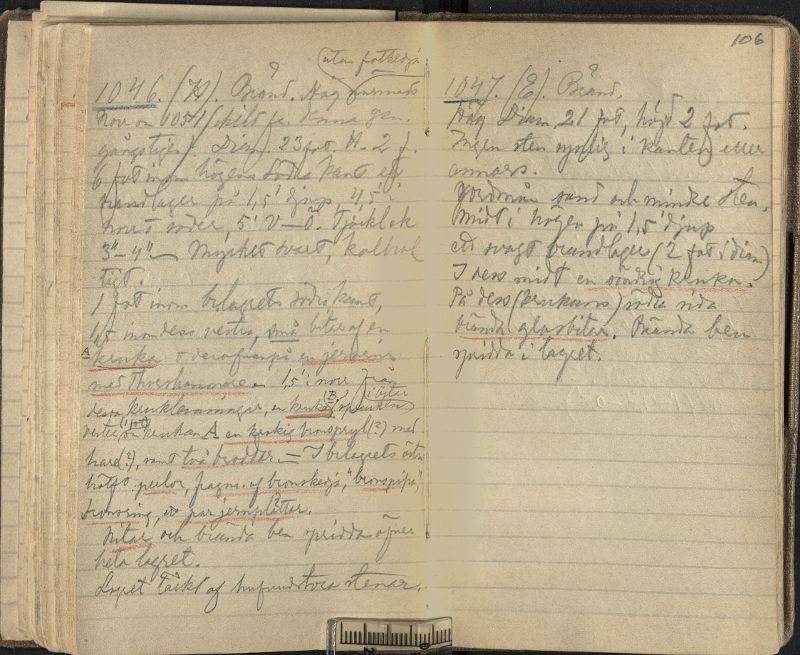 106
utan fotkedja
1046. (H) Brand. Hög närmast
norr om 1051 skilt fr. denna gen.
gångstigen. Diam. 23 fot. H. 2 f.
6 fot inom högens södra kant ett
brandlager på 1,5' djup, 4,5' i
norr o söder, 5' V–Ö. Tjocklek
3"–4". Mycket svart, kolbl
1 fot inom bålagrets södra kant,
inom dess vestra, små bitar af en
A kruka o derofvanpå en jernten
med Thorshammare. – 1,5' i norr från
dessa kruklemningar, en kruka (B) i bitar
vester om krukan A en bronspryl (?) med
(?), samt två broddar. – I bålagrets östra
hälft perlor, fragm. af bronskedja, "bronspipa",
bronsring, ett par jernplattor.
Nitar och brända ben spridda öfver
hela lagret.
Lagret täckt af hufvudstora stenar.
1047. (E). Brand.
Hög Diam 21 fot, höjd 2 fot.
Ingen sten synlig i kanten eller
annars.
Jordmån sand och mindre sten.
Midt i högen på 1,5' djup
ett svagt brandlager (2 fot i diam)
I dess midt en söndrig kruka.
På dess (krukans) södra sida
brända glasbitar. Brända ben
spridda i lagret.